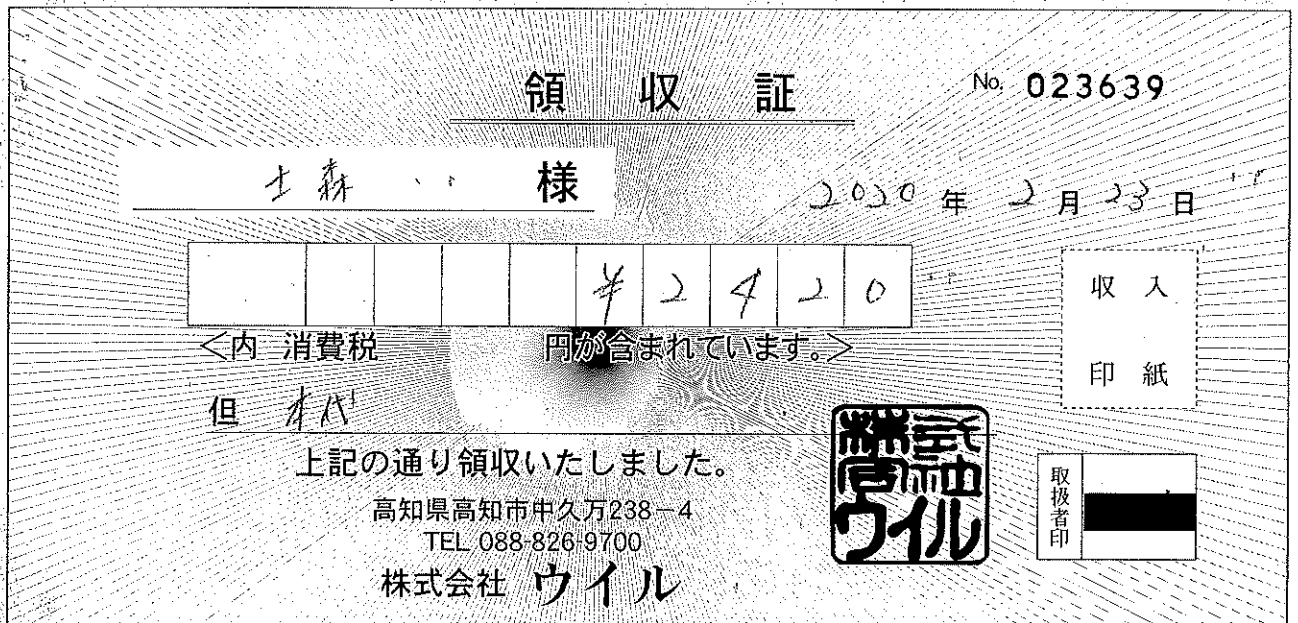 領収証
No. 023639
土森 様
2020年2月23日
¥2420
<内 消費税 円が含まれています。>
収入
印紙
但 本代
上記の通り領収いたしました。
高知県高知市中久万238-4
TEL 088-826-9700
株式会社 ウイル
株式会社ウイル
取扱者印